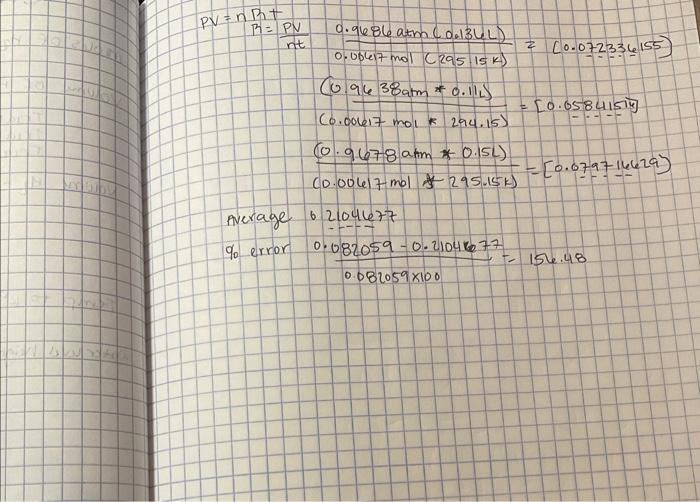 PV = nRt
R = PV / nt
0.9686 atm (0.136L) / 0.00617 mol (295.15 K) = [0.072336155]
(0.9638 atm * 0.11L) / (0.00617 mol * 294.15) = [0.05841514]
(0.9678 atm * 0.15L) / (0.00617 mol * 295.15K) = [0.079716629]
Average 0.2104677
% error 0.082059 - 0.2104677 / 0.082059 x 100 = 156.48